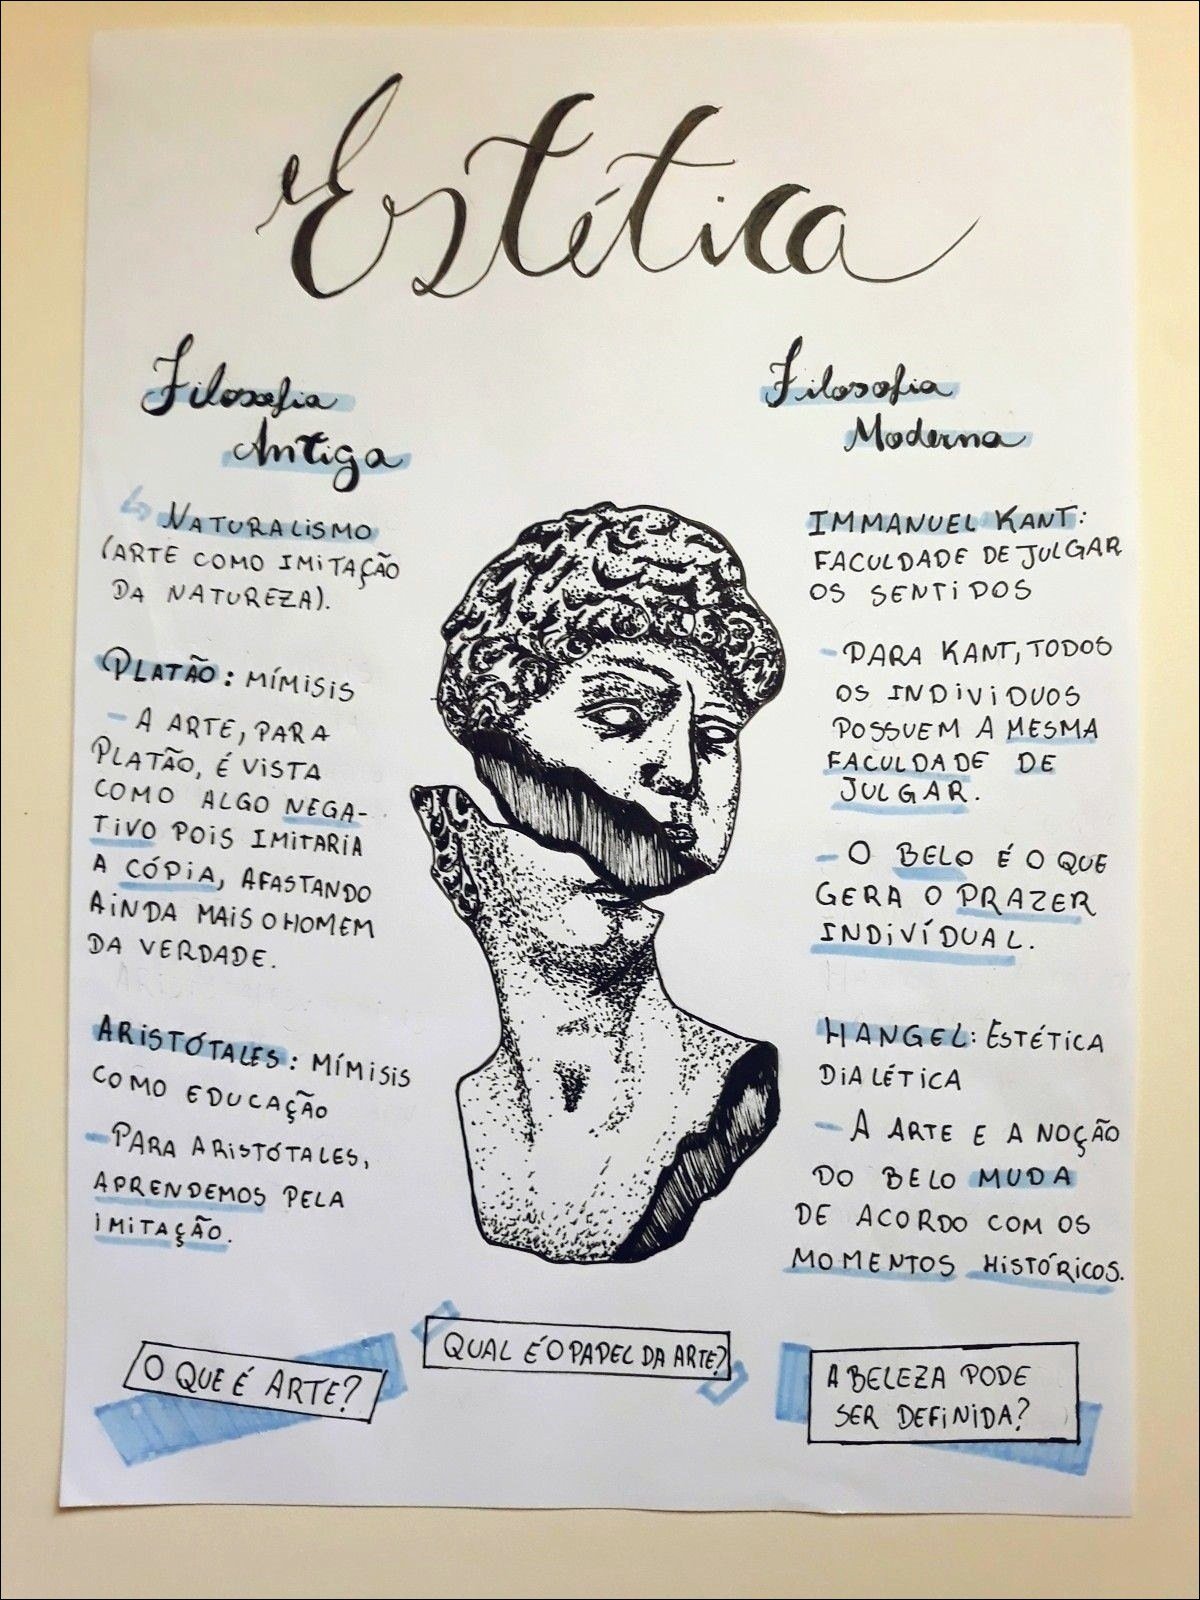 Estética
Filosofia
Antiga
NATURALISMO
(ARTE COMO IMITAÇÃO
DA NATUREZA).
PLATÃO: MÍMISIS
- A ARTE, PARA
PLATÃO, É VISTA
COMO ALGO NEGA-
TIVO POIS IMITARIA
A CÓPIA, AFASTANDO
AINDA MAIS O HOMEM
DA VERDADE.
ARISTÓTALES: MÍMISIS
COMO EDUCAÇÃO
- PARA ARISTÓTALES,
APRENDEMOS PELA
IMITAÇÃO.
Filosofia
Moderna
IMMANUEL KANT:
FACULDADE DE JULGAR
OS SENTIDOS
- PARA KANT, TODOS
OS INDIVIDUOS
POSSUEM A MESMA
FACULDADE DE
JULGAR.
- O BELO É O QUE
GERA O PRAZER
INDIVÍDUAL.
HANGEL: ESTÉTICA
DIALÉTICA
- A ARTE E A NOÇÃO
DO BELO MUDA
DE ACORDO COM OS
MOMENTOS HISTÓRICOS.
O QUE É ARTE?
QUAL É O PAPEL DA ARTE?
A BELEZA PODE
SER DEFINIDA?